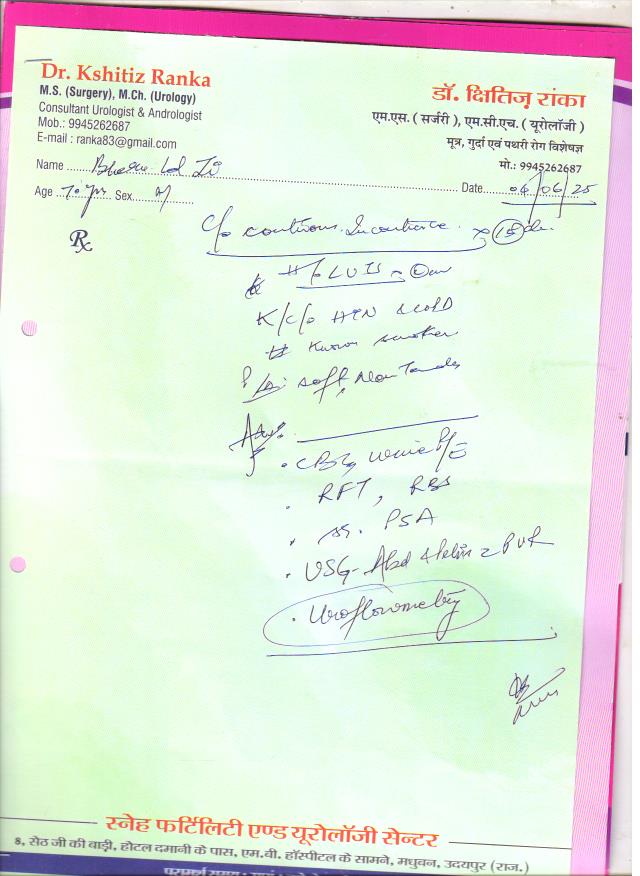 Dr. Kshitiz Ranka
M.S. (Surgery), M.Ch. (Urology)
Consultant Urologist & Andrologist
Mob.: 9945262687
E-mail : ranka83@gmail.com
डॉ. क्षितिज़ रांका
एम.एस. ( सर्जरी ), एम.सी.एच. ( यूरोलॉजी )
मूत्र, गुर्दा एवं पथरी रोग विशेषज्ञ
मो.: 9945262687
Name
Date 04/06/25
Age 70 yrs Sex M
Rx
c/o continous Incontinence x 15
H/o LUTS
K/c/o HTN & COPD
Known smoker
P/A: soft, Non Tender
Adv:
• CBC, Urine R/E
• RFT, RBS
• Sr. PSA
• USG- Abd & Pelvis PVR
• Uroflowmetry
स्नेह फर्टिलिटी एण्ड यूरोलॉजी सेन्टर
8, सेठ जी की बाड़ी, होटल दमानी के पास, एम.बी. हॉस्पीटल के सामने, मधुबन, उदयपुर (राज.)